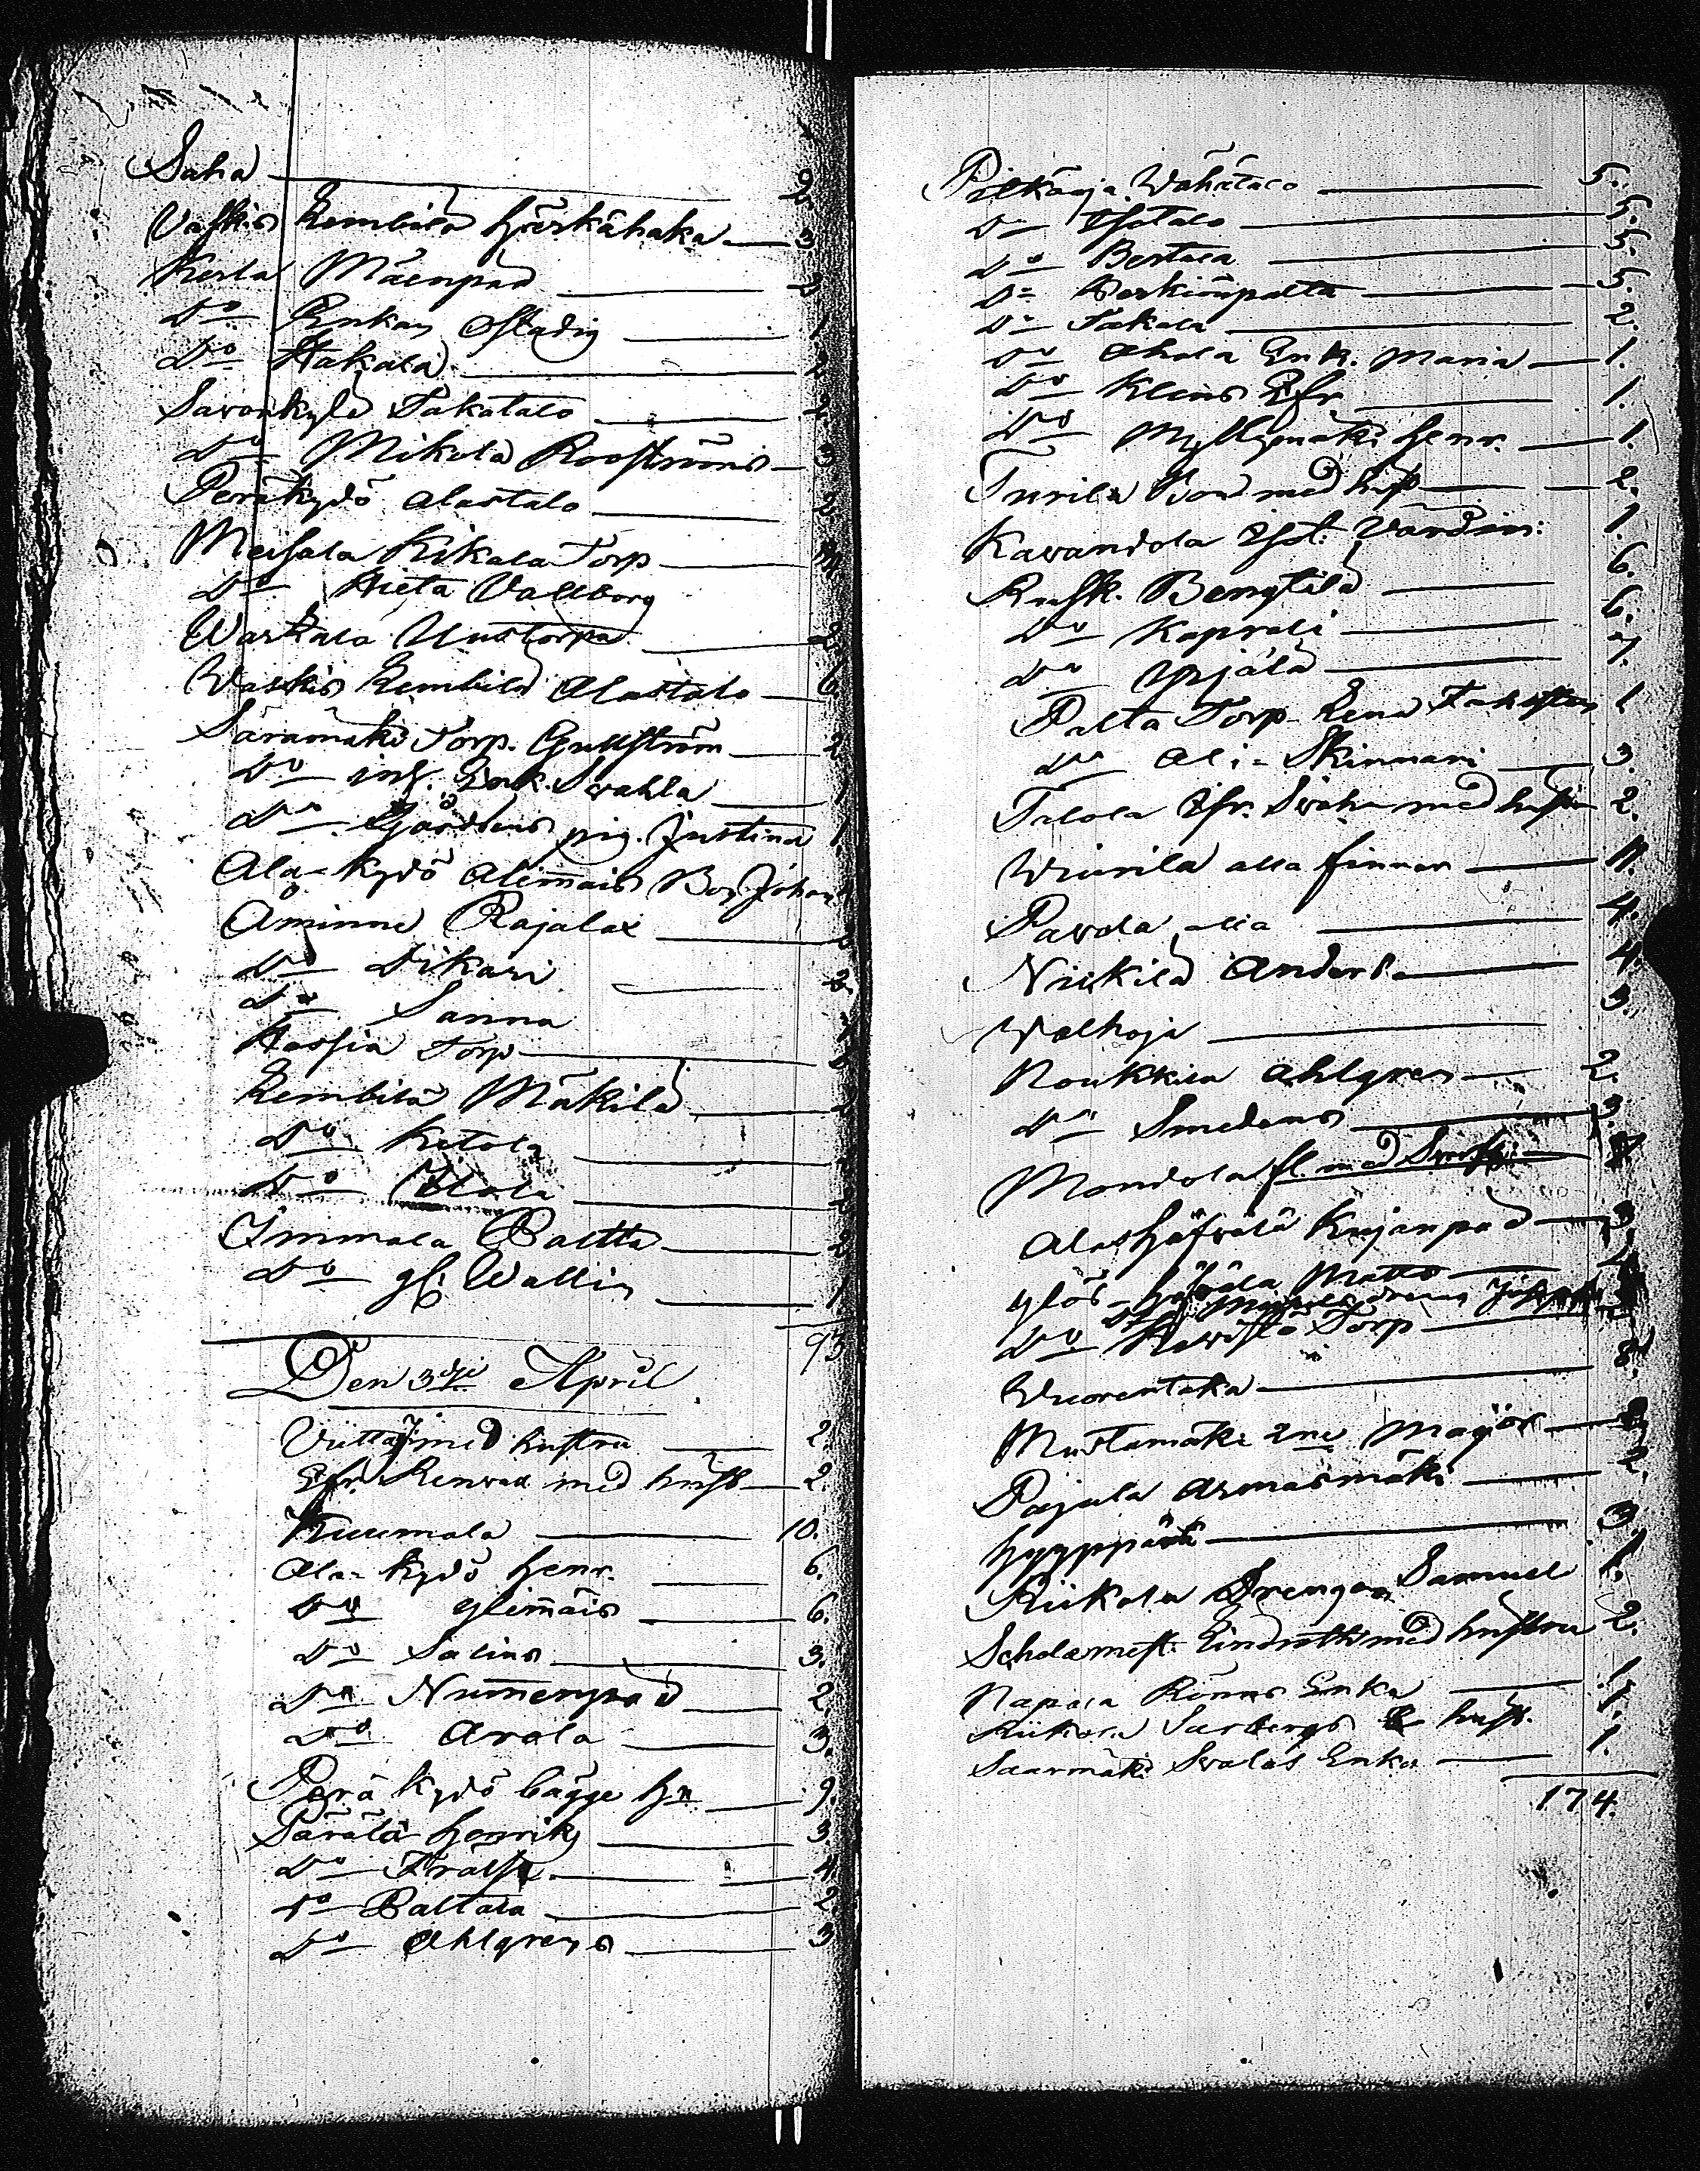 Saha 2
Vaskio Kembilä Härkähaka 3
Kerla Mäenpää 2
Do Enkan Ostadig 1
Do Hakala 2
Savonkylä Takatalo 2
Do Mikola Rooströms 3
Peräkydö Alastalo 2
Meisala Kikala Torp
Do Hieta Vallborg
Warkala Uustorpa 2
Waskio Kembilä Alastalo 6
Säramäki Torp. Gullström 2
Do inh. Enk. Swahla 1
Do Gårdens pig. Justina 1
Ala-kydö Alimais Boy Johan
Åminne Rajalax
Do Dikari 2
Do Sanna
Hassia Torp
Kembilä Mäkilä
Do Ketola
Do Ylola
Immala Paltta 2
Do gl. Wallin 1
93
Den 3dje April
Viitta med hustru 2.
Efr. Renvall med hust 2.
Kuumala 10.
Ala-kydö Henr. 6.
Do Ylimäis 6.
Do Salins 3.
Do Nummenpää 2
Do Arola 3.
Perä kydö bägge hn 9.
Pärälä Henrik 3
Do Frälse 4
Do Paltala 2
Do Ahlgrens 3
Pitkäoja Wähätalo 5.
Do Isotalo 5.
Do Bertala 5.
Do Perkiönpalta 5.
Do Takala 2.
Do Ahola Enk. Maria 1.
Do Klens Efr. 1.
Do Myllymäki Henr. 1.
Turila Bon med hust 2.
Kavandola Inst. Vårdin: 1.
Rusk. Bengtilä 6.
Do Kaprali 6.
Do Yrjälä 7.
Palta Torp Lena 1
Do Ali-Skinnari 3.
Talola Efr. Swahn med hustru 2.
Wiurila alla finnar 11.
Pavola alla 4.
Niskilä Anders 4.
Walhoja 3.
Noukkila Ahlgren 2.
Do Smedens 3.
Mondola fl. med
Alashöfvälä Kujanpää 3
Ylös- Matts
Do Torp
Wuorentaka 8.
Mustamäki 2ne Magör
Pajula Armasmäki 2.
Hyyppärä 3
Riikola Drengen Samuel 1.
Scholamest. Lindroth med hustru 2.
Napala Rönns Enka 1.
Riikola Sarbergs hust. 1.
Saarmäki Swalas Enka 1.
174.